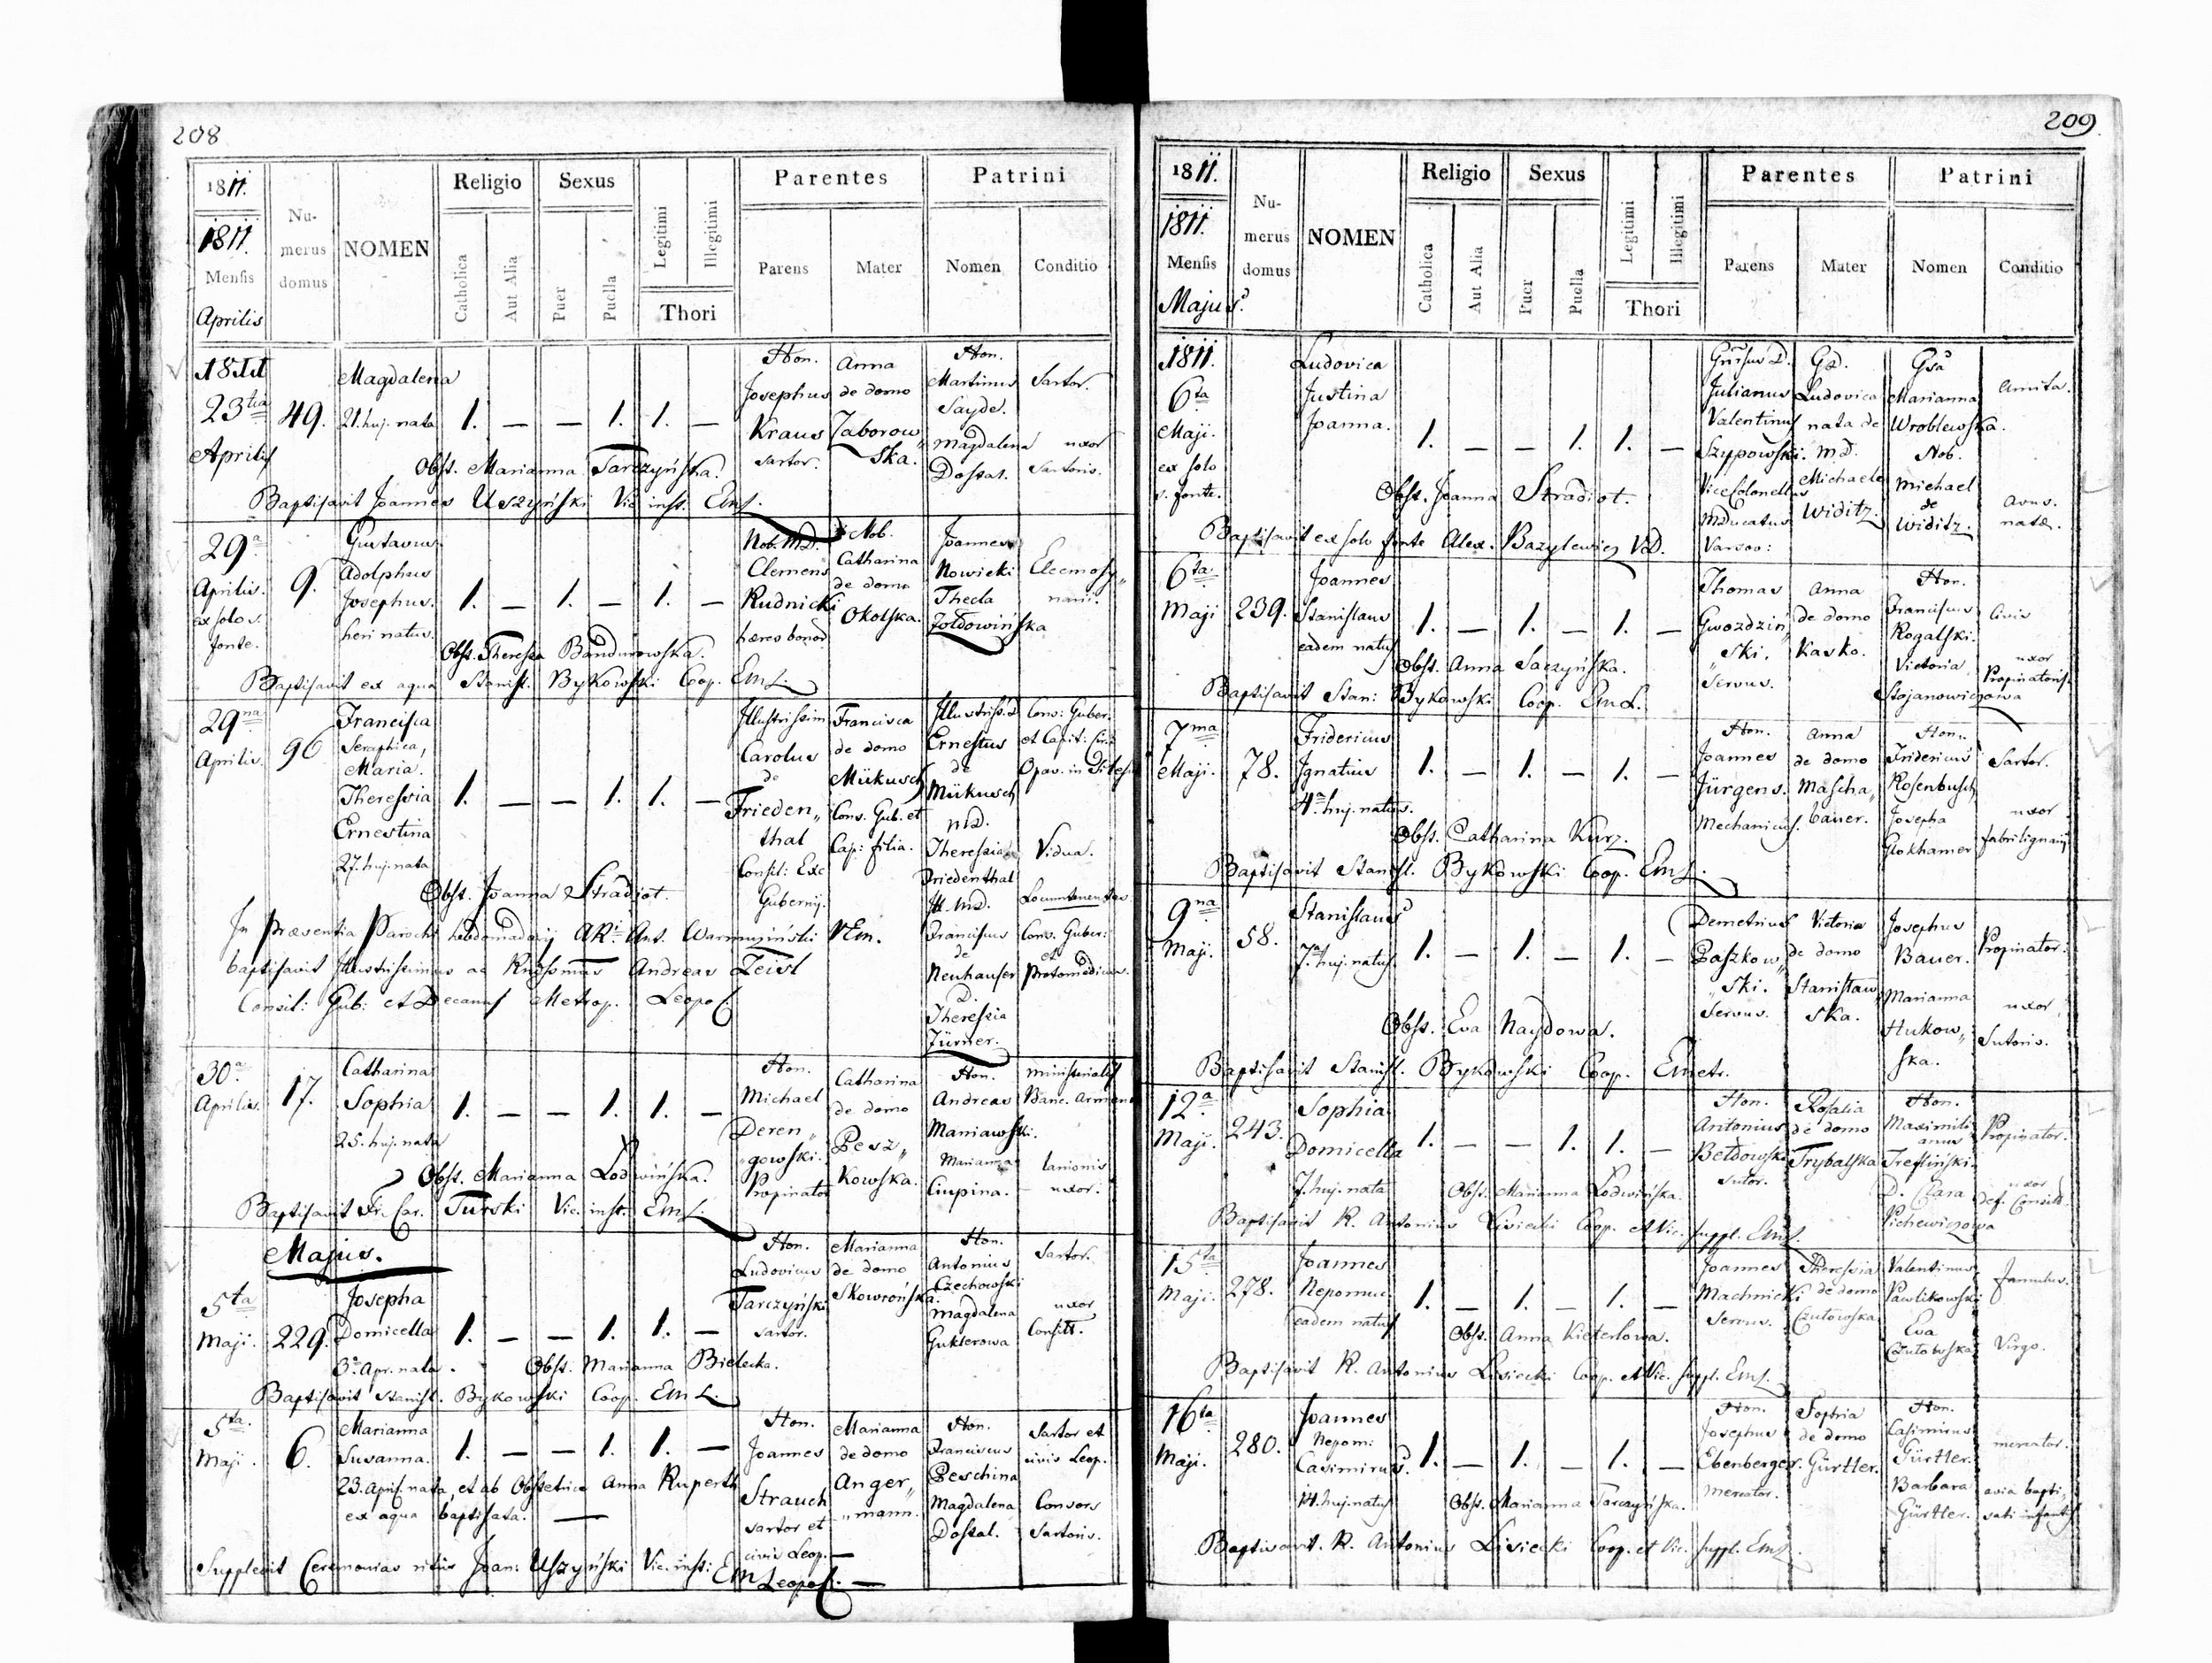 208
1811.
1811.
Mensis
Aprilis
Nu-
merus
domus
NOMEN
Religio
Catholica
Aut Alia
Sexus
Puer
Puella
Legitimi
Illegitimi
Thori
Parentes
Parens
Mater
Patrini
Nomen
Conditio
1811
23tia
Aprilis
49.
Magdalena
21. huj. nata
1. — — 1. 1. —
Hon.
Josephus
Kraus
sartor.
Anna
de domo
Zaborow„
ska.
Hon.
Martinus
Sayde.
Magdalena
Dostal.
Sartor.
uxor
Sartoris.
Obst. Marianna Tarczyńska.
Baptisavit Joannes Uszyński Vic. inst. EmL.
29a
Aprilis.
ex solo s.
fonte.
9.
Gustavus
Adolphus
Josephus.
heri natus.
1. — 1. — 1. —
Nob. MD.
Clemens
Rudnicki
hæres bonor
Nob.
Catharina
de domo
Okolska.
Joannes
Nowicki
Thecla
Żołdowińska
Eleemosy„
narii.
Obst. Theresia Bandurowska.
Baptisavit ex aqua Stanisl. Bykowski Coop. EmL.
29na
Aprilis.
96
Francisca
Seraphica,
Maria.
Theresia
Ernestina
27. huj. nata
1. — — 1. 1. —
Illustrissim
Carolus
de
Frieden„
thal
Consil: Exc
Gubernij.
Francisca
de domo
Mükusch
Cons. Gub. et
Cap: filia.
Illustriss. D
Ernestus
de
Mükusch
MD.
Theresia
Friedenthal
Ill. MD.
Franciscus
de
Neuhauser
D.
Theresia
Türner.
Cons: Guber:
et Capit: Circ:
Opav. in Silesia
Vidua.
Locumtenentes
Cons. Guber:
et
Protomedicus.
Obst. Joanna Stradiot.
In præsentia Parochi hebdomadarij ARi Ant. Warmuziński VEm.
baptisavit Illustrissimus ac Rndssmus Andreas Zeisl
Consil: Gub: et Decanus Metrop. Leopol.
30a
Aprilis.
17.
Catharina
Sophia
25. huj. nata
1. — — 1. 1. —
Hon.
Michael
Deren„
„gowski.
Propinator
Catharina
de domo
Pesz„
kowska.
Hon.
Andreas
Maniawski.
Marianna
Ciupina.
Ministerialis
Banc. Armen
lanionis
uxor.
Obst. Marianna Lodwińska.
Baptisavit Fr. Car. Turski Vic. inst. EmL.
Majus.
5ta
Maji.
229.
Josepha
Domicella
3a Apr. nata.
1. — — 1. 1. —
Hon.
Ludovicus
Tarczyński
sartor.
Marianna
de domo
Skowrońska.
Hon.
Antonius
Czechowski
Magdalena
Guklerowa
Sartor.
uxor
Consilt.
Obst. Marianna Bielecka.
Baptisavit Stanisl. Bykowski Coop. EmL.
5ta.
Maji.
6.
Marianna
Susanna.
1. — — 1. 1. —
23. April. nata, et ab Obstetrice Anna Ruperth
ex aqua baptisata. —
Hon.
Joannes
Strauch
sartor et
civis Leop. —
Marianna
de domo
Anger„
„mann.
Hon.
Franciscus
Peschina
Magdalena
Dostal.
Sartor et
civis Leop.
Consors
Sartoris.
Supplevit Ceremonias ritus Joan: Uszyński Vic. inst: EmLeopol. —
209.
1811.
1811.
Mensis
Majus.
Nu-
merus
domus
NOMEN
Religio
Catholica
Aut Alia
Sexus
Puer
Puella
Legitimi
Illegitimi
Thori
Parentes
Parens
Mater
Patrini
Nomen
Conditio
1811.
6ta
Maji.
ex solo
s. fonte.
Ludovica
Justina
Joanna.
1. — — 1. 1. —
Julianus
Valentinus
Szypowski.
ViceColonellus
MDucatus
Varsov:
GD.
Ludovica
nata de
MD.
Michaele
Widitz.
Gsa
Marianna
Wroblewska.
Nob.
Michael
de
Widitz.
Amita.
Avus.
natæ.
Obst. Joanna Stradiot.
Baptisavit ex solo fonte Alex. Bazylewicz VD.
6ta
Maji
239.
Joannes
Stanislaus
eadem natus
1. — 1. — 1. —
Thomas
Gwozdziń
ski.
„Servus.
Anna
de domo
Kasko.
Hon.
Franciscus
Rogalski.
Victoria
Stojanowiczowa
Civis
uxor
Propinatoris.
Obst. Anna Saczyńska.
Baptisavit Stan: Bykowski Coop. EmL.
7ma
Maji.
78.
Fridericus
Ignatius
4a huj. natus.
1. — 1. — 1. —
Hon.
Joannes
Jürgens.
Mechanicus.
Anna
de domo
Mascha„
bauer.
Hon.
Fridericus
Rosenbusch
Josepha
Glokhamer
Sartor.
uxor
fabrilignarij
Obst. Catharina Kurz.
Baptisavit Stanisl. Bykowski Coop. EmL.
9na
Maji.
58.
Stanislaus
7a huj. natus
1. — 1. — 1. —
Demetrius
Paszkow„
„ski.
Servus.
Victoria
de domo
Stanisław„
ska.
Josephus
Bauer.
Marianna
Hukow„
ska.
Propinator.
uxor
Sutoris.
Obst. Eva Naydowa.
Baptisavit Stanisl. Bykowski Coop. Emetr.
12a
Maji.
243.
Sophia
Domicella
7. huj. nata
1. — — 1. 1. —
Hon.
Antonius
Bełdowski
Sutor.
Rosalia
de domo
Trybalska
Hon.
Maximili
anus
Trefliński.
D. Clara
Pichewiczowa
Propinator.
uxor
def. Consilt.
Obst. Marianna Lodwińska.
Baptisavit R. Antonius Lisiecki Coop. et Vic. suppl. EmL.
15ta
Maji.
278.
Joannes
Nepomuc.
eadem natus
1. — 1. — 1. —
Joannes
Machnicki
Servus.
Theresia
de domo
Czułowska
Valentinus
Pawlikowski
Eva
Czułowska
Famulus.
Virgo.
Obst. Anna Kieterlowa.
Baptisavit R. Antonius Lisiecki Coop. et Vic. suppl. EmL.
16ta
Maji.
280.
Joannes
Nepom:
Casimirus.
14. huj. natus
1. — 1. — 1. —
Hon.
Josephus
Ebenberger.
Mercator.
Sophia
de domo
Gürtler.
Hon.
Casimirus
Gürtler.
Barbara
Gürtler.
mercator.
avia bapti„
sati infantis
Obst. Marianna Tarczyńska.
Baptisavit. R. Antonius Lisiecki Coop. et Vic. suppl. EmL.